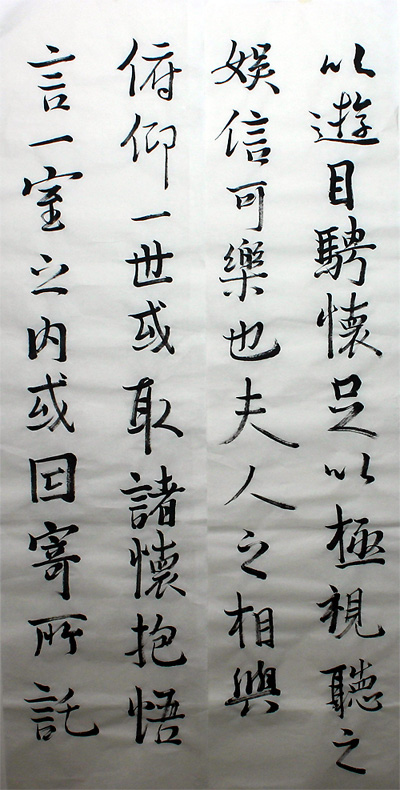 以遊目騁懷足以極視聽之
娱信可樂也夫人之相與
俯仰一世或取諸懷抱悟
言一室之内或因寄所託